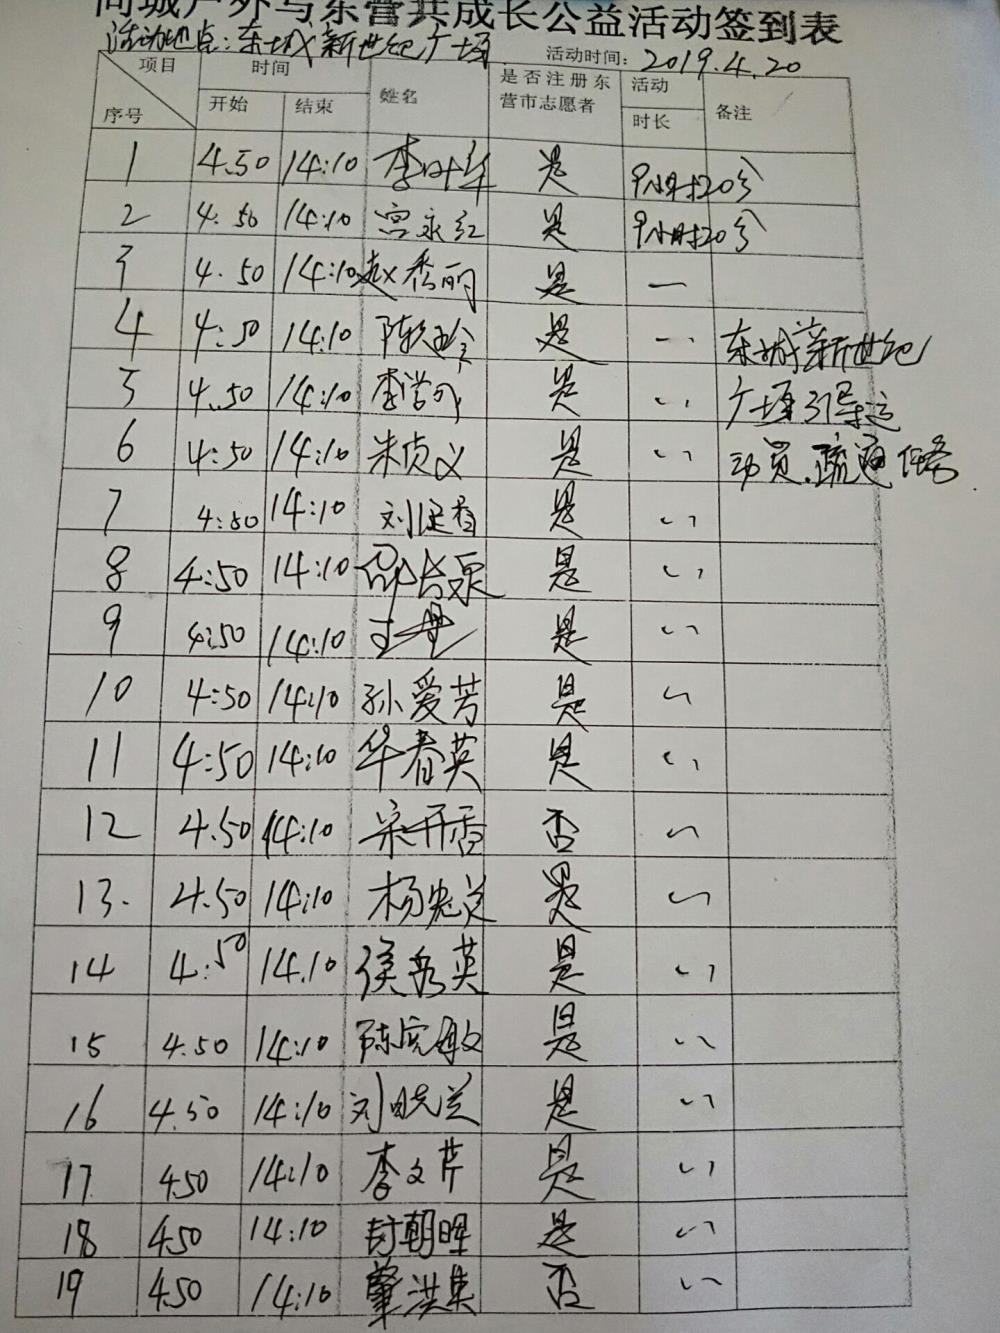 同城户外与东营共成长公益活动签到表
活动地点:东城新世纪广场 活动时间: 2019.4.20
项目 时间 姓名 是否注册东营市志愿者 活动时长 备注
序号 开始 结束
1 4.50 14:10 李叶华 是 9小时20分
2 4.50 14:10 宫永红 是 9小时20分
3 4.50 14:10 赵秀丽 是 一
4 4:50 14:10 是 一 东城新世纪
5 4.50 14:10 是 〃 广场引导运
6 4:50 14:10 朱贞义 是 〃 动员.疏通任务
7 4:50 14:10 是 〃
8 4:50 14:10 是 〃
9 4:50 14:10 是 〃
10 4:50 14:10 孙爱芳 是 〃
11 4:50 14:10 华春英 是 〃
12 4.50 14:10 宋开香 否 〃
13. 4.50 14:10 是 〃
14 4:50 14.10 侯秀英 是 〃
15 4.50 14:10 是 〃
16 4.50 14:10 刘晓兰 是 〃
17 4.50 14:10 李文芹 是 〃
18 4.50 14:10 封朝晖 是 〃
19 4.50 14:10 肇洪集 否 〃